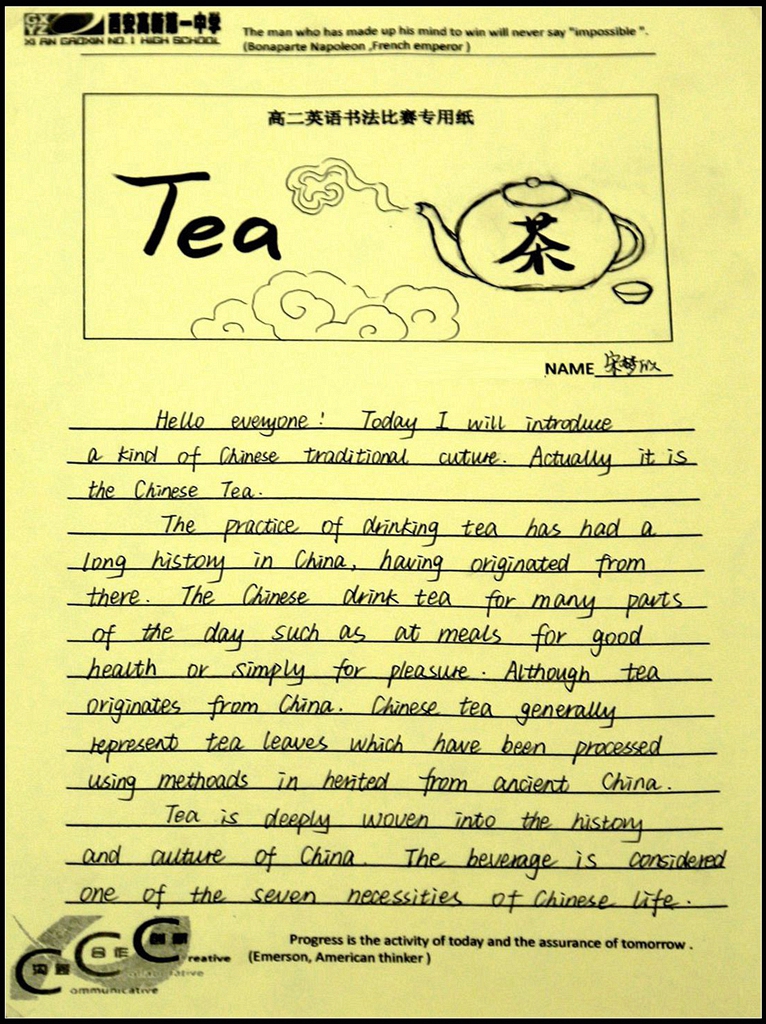 GX
YZ 西安高新第一中学
XI'AN GAOXIN NO.1 HIGH SCHOOL
The man who has made up his mind to win will never say "impossible ".
(Bonaparte Napoleon ,French emperor )
高二英语书法比赛专用纸
Tea
茶
NAME 宋梦欣
Hello everyone! Today I will introduce
a kind of Chinese traditional cuture. Actually it is
the Chinese Tea.
The practice of drinking tea has had a
long history in China, having originated from
there. The Chinese drink tea for many parts
of the day such as at meals for good
health or simply for pleasure. Although tea
originates from China. Chinese tea generally
represent tea leaves which have been processed
using methoads in herited from ancient China.
Tea is deeply woven into the history
and culture of China. The beverage is considered
one of the seven necessities of Chinese life.
Progress is the activity of today and the assurance of tomorrow .
(Emerson, American thinker )
创新
Creative
合作
Collaborative
沟通
Communicative